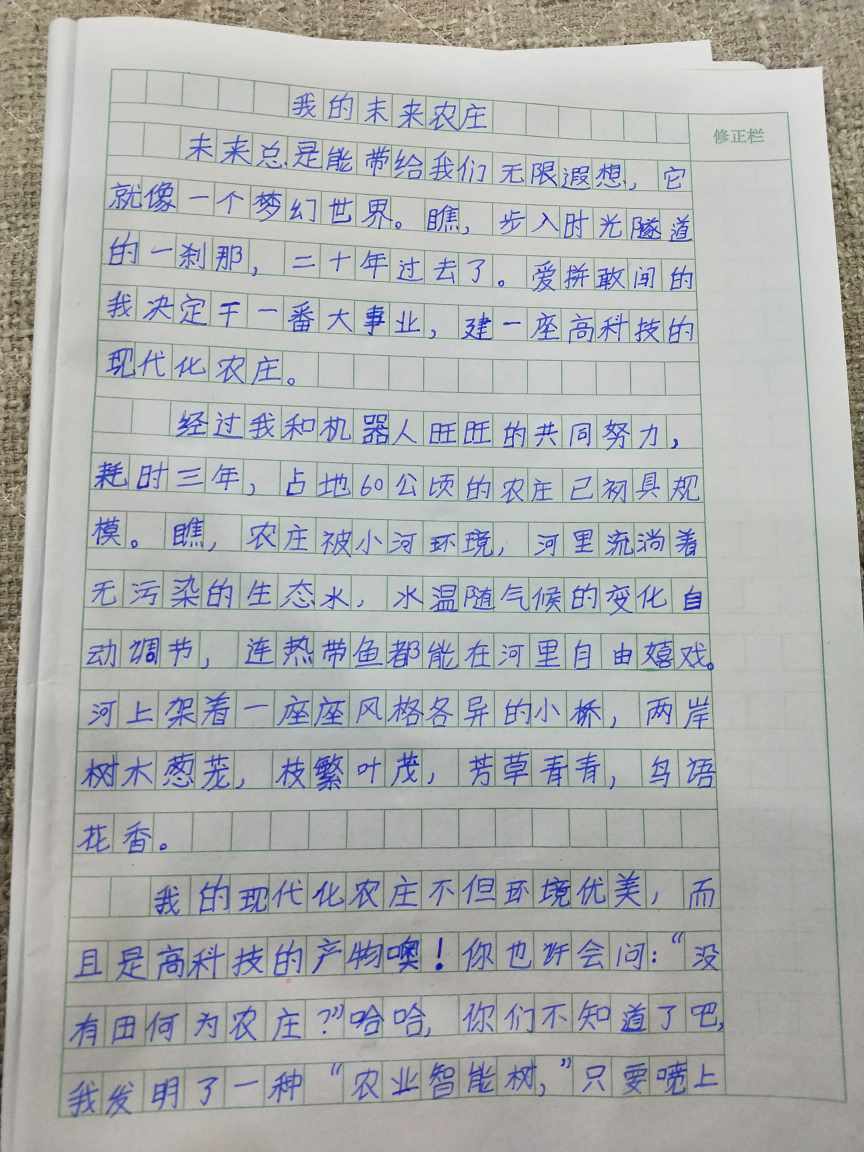 我的未来农庄
修正栏
未来总是能带给我们无限遐想，它
就像一个梦幻世界。瞧，步入时光隧道
的一刹那，二十年过去了。爱拼敢闯的
我决定干一番大事业，建一座高科技的
现代化农庄。
经过我和机器人旺旺的共同努力，
耗时三年，占地60公顷的农庄已初具规
模。瞧，农庄被小河环境，河里流淌着
无污染的生态水，水温随气候的变化自
动调节，连热带鱼都能在河里自由嬉戏。
河上架着一座座风格各异的小桥，两岸
树木葱茏，枝繁叶茂，芳草青青，鸟语
花香。
我的现代化农庄不但环境优美，而
且是高科技的产物噢！你也许会问：“没
有田何为农庄？”哈哈，你们不知道了吧，
我发明了一种“农业智能树，”只要喷上